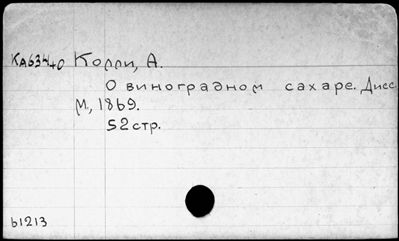 КА634+0 Колли, А.
О виноградном сахаре. Дисс.
М., 1869.
52 стр.
b1213